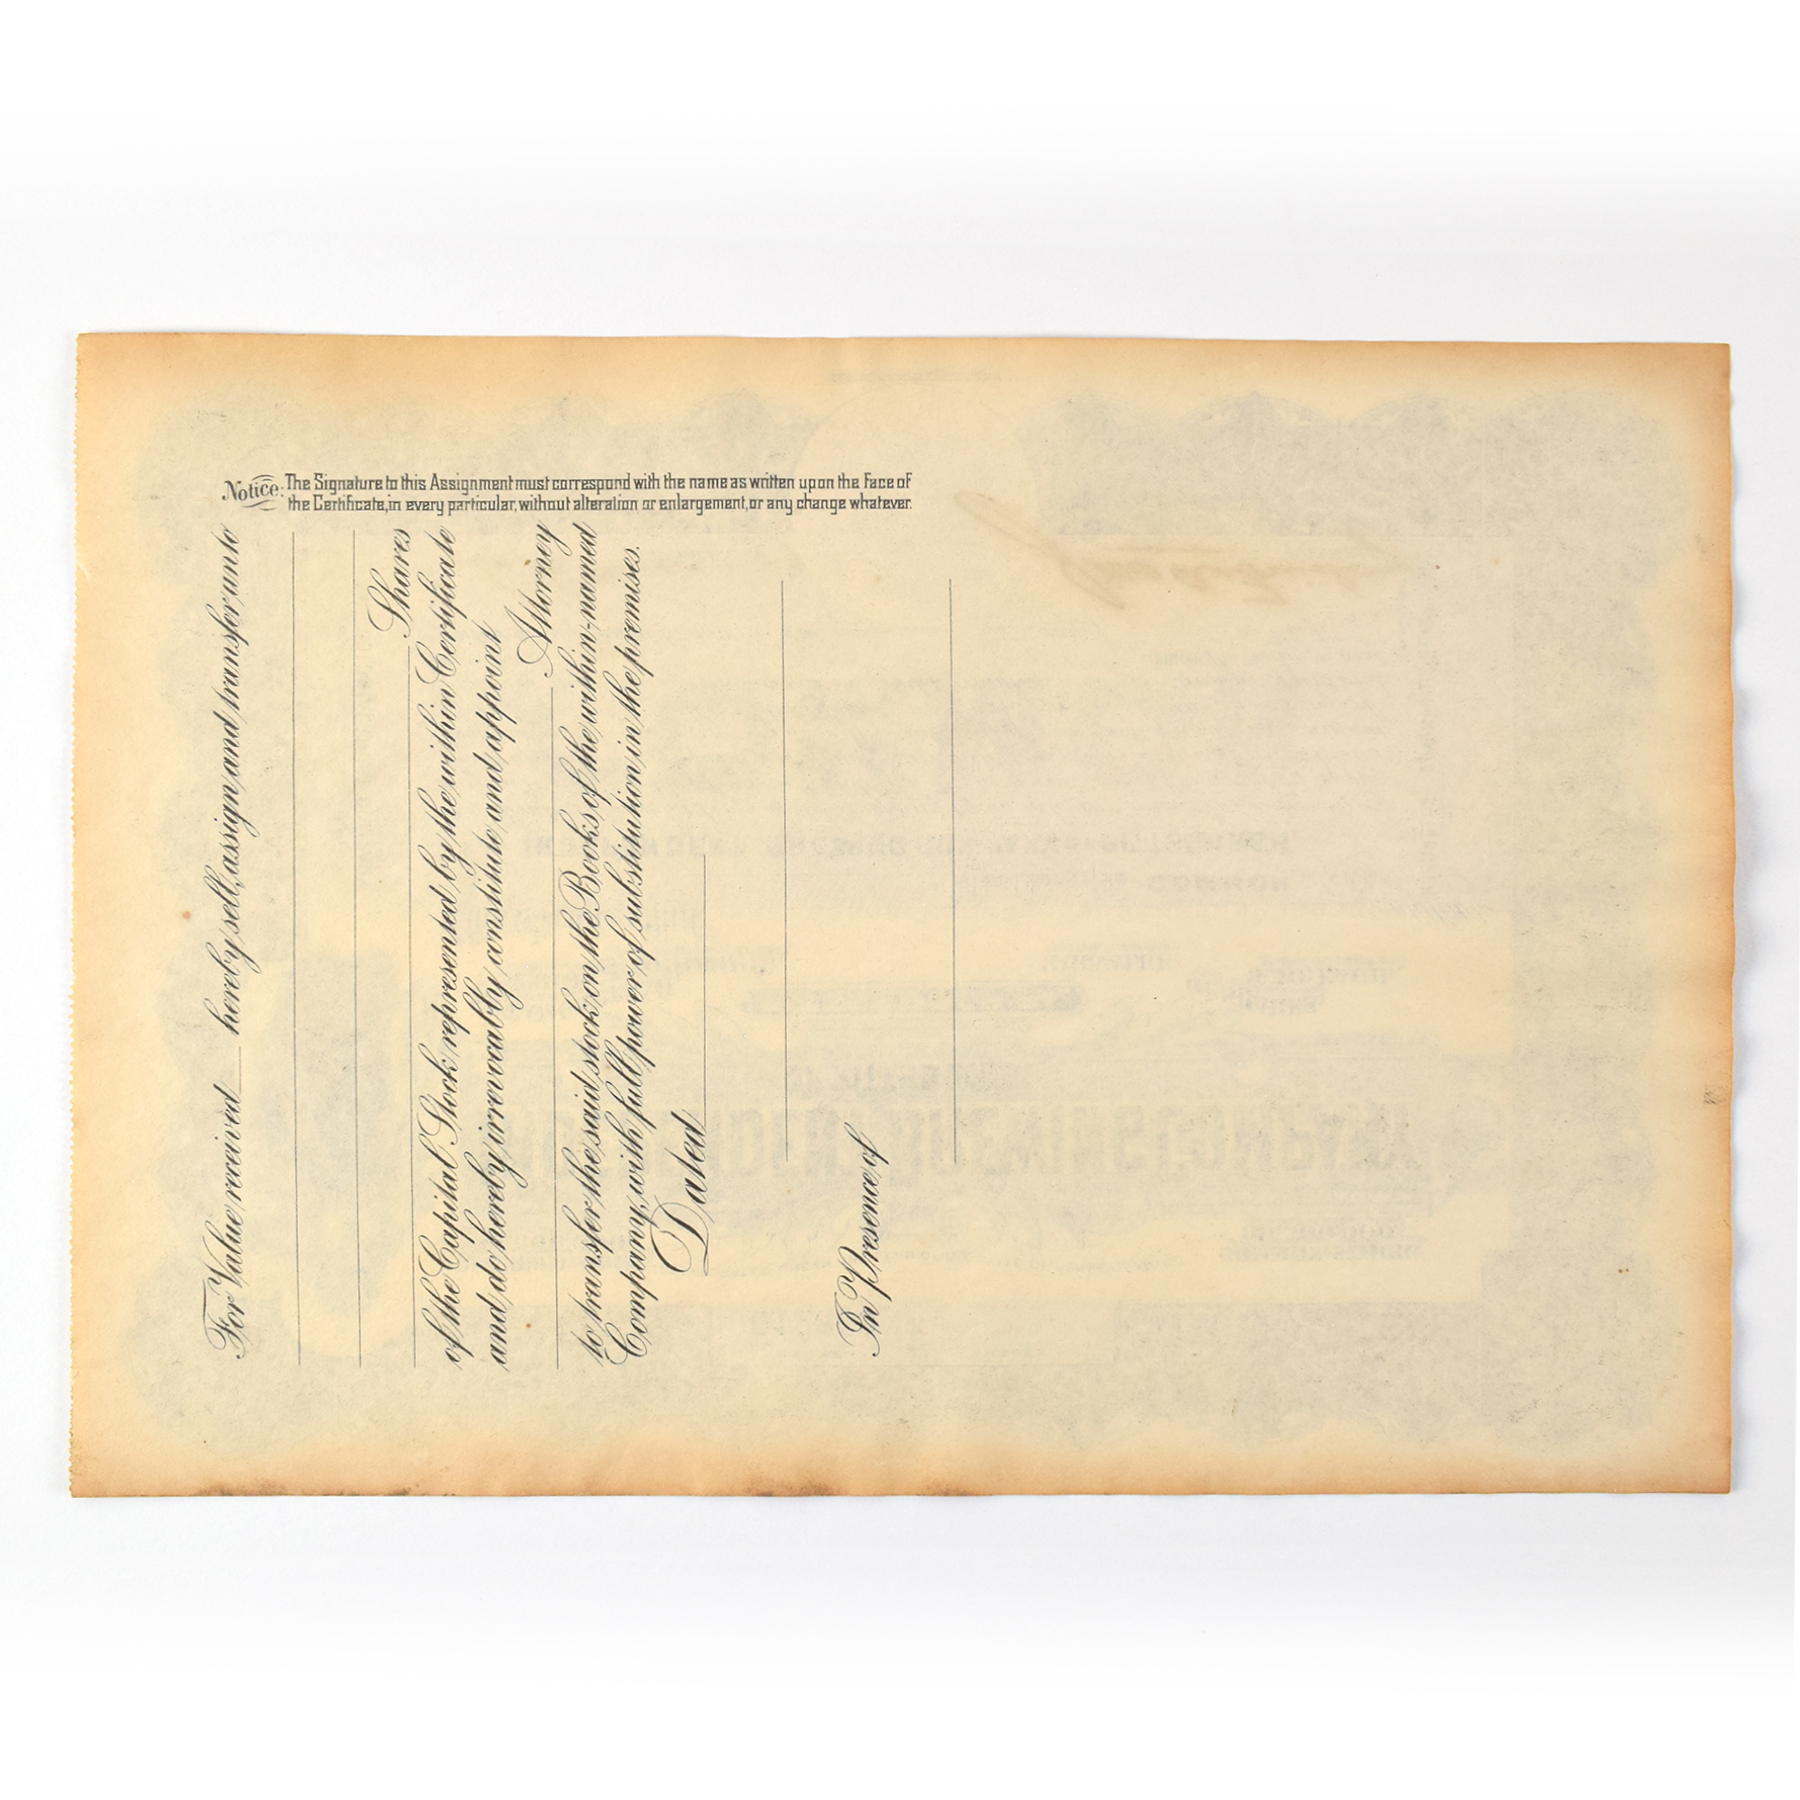 Notice: The Signature to this Assignment must correspond with the name as written upon the Face of
the Certificate, in every particular, without alteration or enlargement, or any change whatever.
For Value received ___ hereby sell, assign, and transfer, unto
Shares
of the Capital Stock represented by the within Certificate
and do hereby irrevocably constitute and appoint
Attorney
to transfer the said stock on the Books of the within-named
Company, with full power of substitution in the premises.
Dated
In Presence of